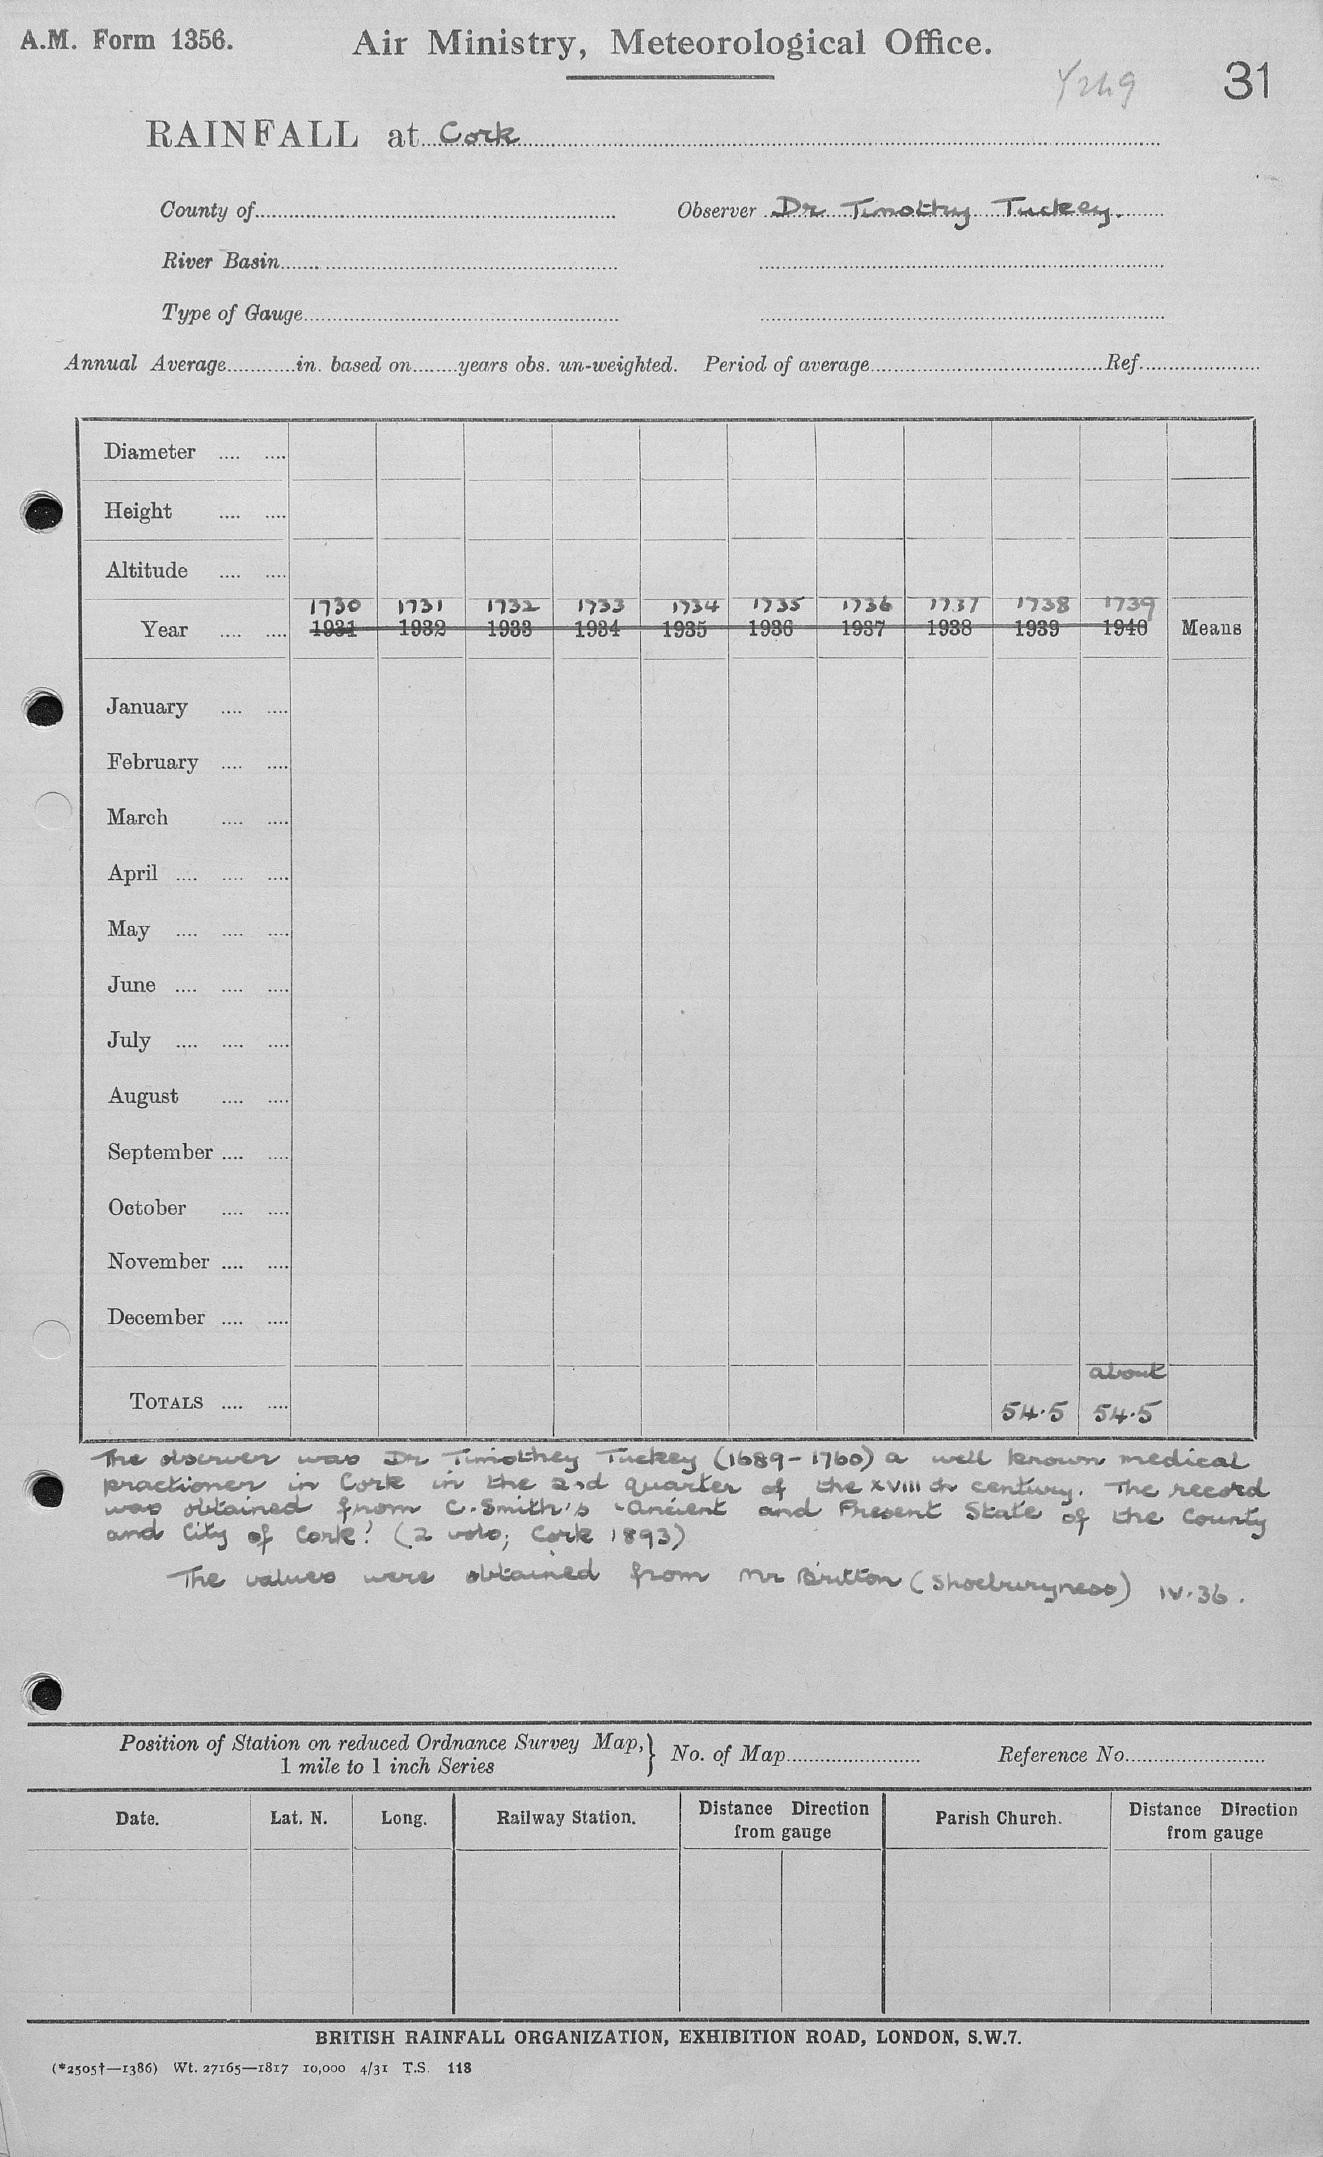 A.M. Form 1356.
Air Ministry, Meteorological Office.
31
RAINFALL at Cork
County of Observer Dr Timothy Tuckey.
River Basin
Type of Gauge
Annual Average in. based on years obs. un-weighted. Period of average Ref.
Diameter
Height
Altitude
1730 1731 1732 1733 1734 1735 1736 1737 1738 1739
Year 1931 1932 1933 1934 1935 1936 1937 1938 1939 1940 Means
January
February
March
April
May
June
July
August
September
October
November
December
about
TOTALS 54.5 54.5
The observer was Dr Timothey Tuckey (1689-1760) a well known medical
practioner in Cork in the 2nd quarter of the XVIII th century. The record
was obtained from C. Smith's 'Ancient and Present State of the County
and City of Cork'. (2 vols; Cork 1893)
The values were obtained from Mr Britton (Shoeburyness) IV.36.
Position of Station on reduced Ordnance Survey Map, } No. of Map Reference No.
1 mile to 1 inch Series
Date. Lat. N. Long. Railway Station. Distance Direction from gauge Parish Church. Distance Direction from gauge
BRITISH RAINFALL ORGANIZATION, EXHIBITION ROAD, LONDON, S.W.7.
(*2505†—1386) Wt. 27165—1817 10,000 4/31 T.S. 118